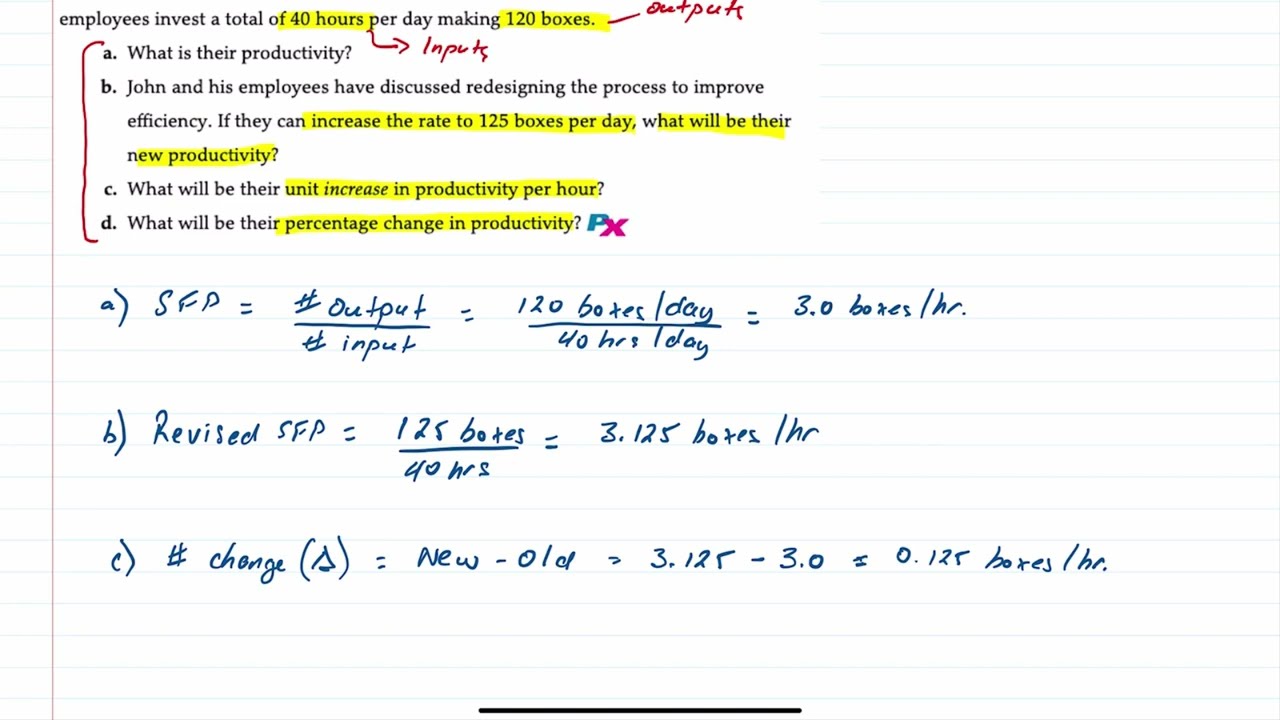 employees invest a total of 40 hours per day making 120 boxes. outputs
a. What is their productivity? Inputs
b. John and his employees have discussed redesigning the process to improve
efficiency. If they can increase the rate to 125 boxes per day, what will be their
new productivity?
c. What will be their unit increase in productivity per hour?
d. What will be their percentage change in productivity? PX
a) SFP = # output / # input = 120 boxes/day / 40 hrs/day = 3.0 boxes/hr.
b) Revised SFP = 125 boxes / 40 hrs = 3.125 boxes/hr
c) # change (Δ) = New - Old = 3.125 - 3.0 = 0.125 boxes/hr.